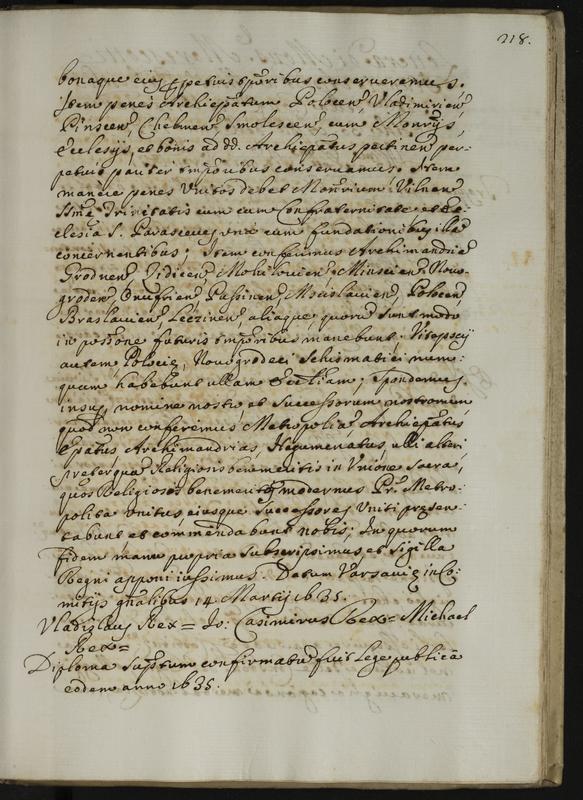 218.
bonaque eius perpetuis temporibus conserveremus.
Item penes Archiepatum Polocen, Vladimirien,
Pinscen, Chelmen, Smolescen, cum Monriis,
Ecclesijs, et bonis ad dd. Archiepatus pertinen per-
petuis pariter temporibus conservamus. Item
manere penes Unitos debet Monrium Vilnen
SSmae Trinitatis cum eum Confraternitate et Ec-
clesia S. Parasceues una cum fundationibus illa
concernentibus; Item conferimus Archimandrias
Grodnen, Zidicen, Mohilovien, Minscien, Novo-
groden, Onufrien, Mscislavien, Polocen,
Braslavien, Leczinen aliaque, quorum sunt modo
in possone futuris temporibus manebunt; Vitepscij
autem, Polociae, Novogrodeci Schismatici num-
quam habebunt ullam Eccliam; Spondemus
insup, nomine nostro, et Successorum nostrorum
quod non conferemus Metropolia, Archiepatus
Epatus Archimandrias, Hegumenatus, ulli alteri
preterquam Religiosis benemeritis in Unione Sacra,
quos Religiosos benemeritos modernus Pr. Metro-
polita Unitus, eiusque Successores Uniti presen-
tabunt et commendabunt nobis; In quorum
fidem manu propria subscripsimus et sigilla
Regni apponi iussimus. Datum Varsaviae in Co-
mitijs gnalibus 14 Martij 1635.
Vladislaus Rex = Jo: Casimirus Rex = Michael
Rex =
Diploma supstum confirmatum fuit Lege publica
eodem anno 1635.